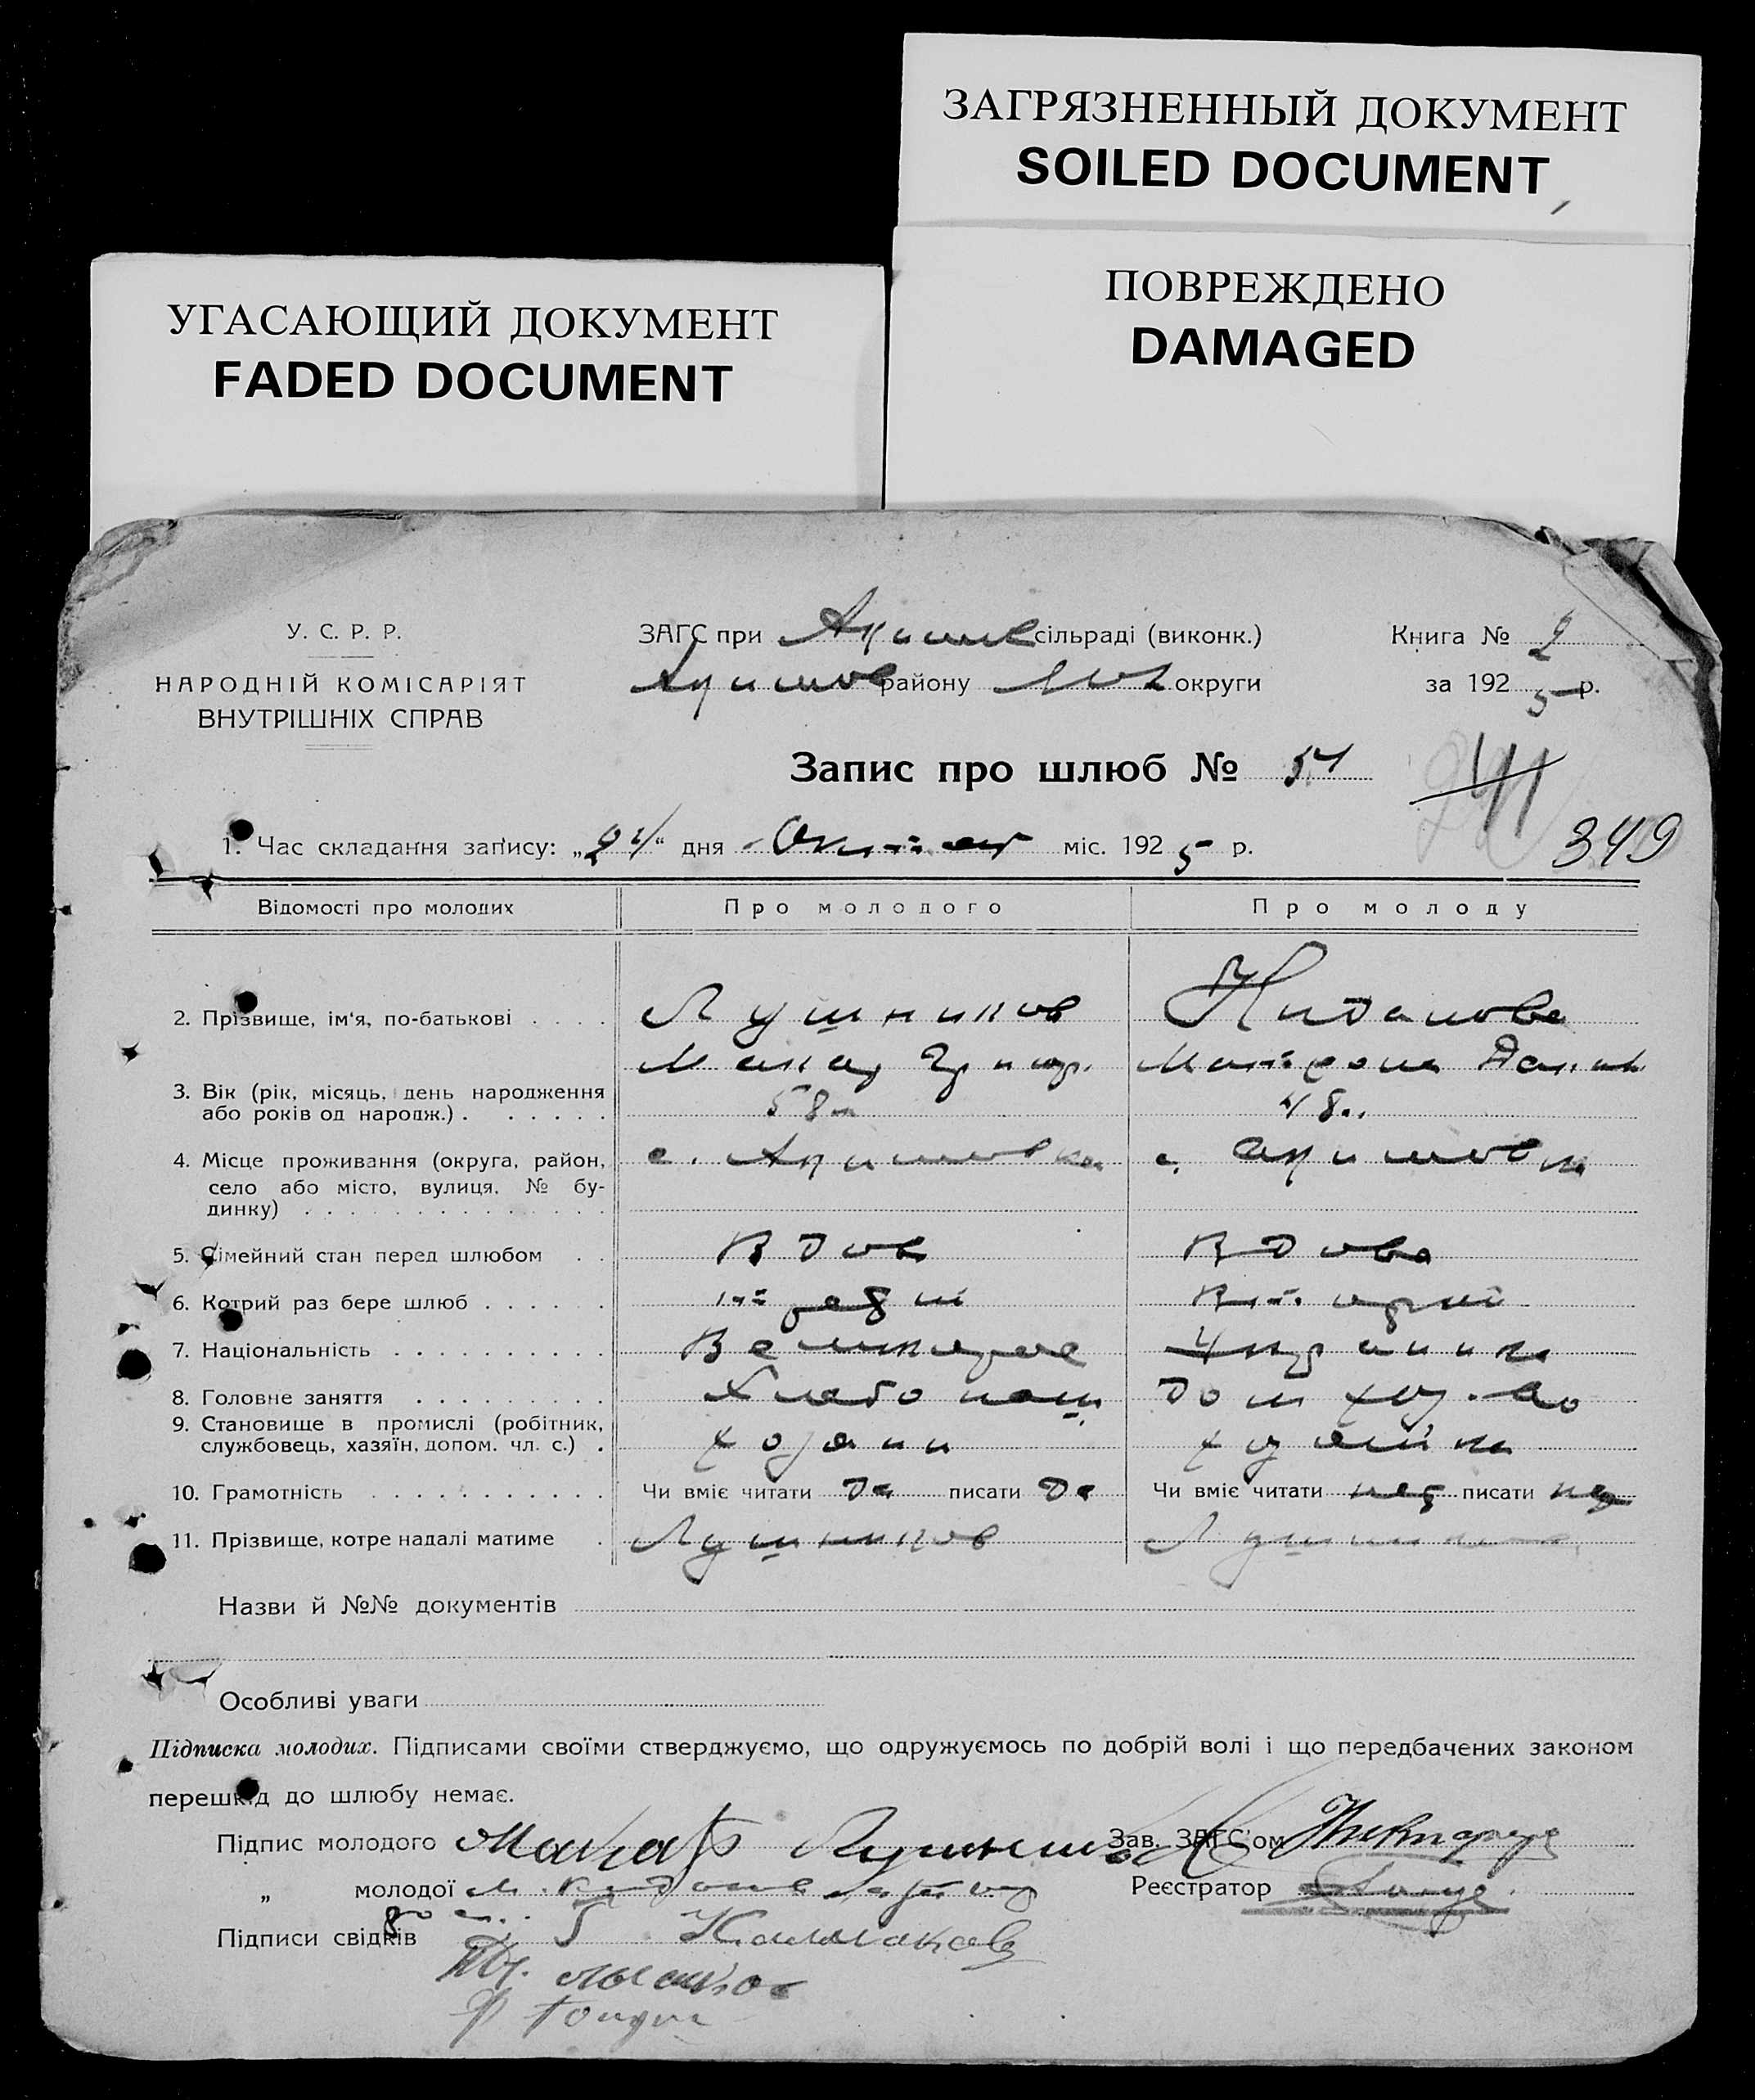 ЗАГРЯЗНЕННЫЙ ДОКУМЕНТ
SOILED DOCUMENT
УГАСАЮЩИЙ ДОКУМЕНТ
FADED DOCUMENT
ПОВРЕЖДЕНО
DAMAGED
У. С. Р. Р.
НАРОДНІЙ КОМІСАРІЯТ
ВНУТРІШНІХ СПРАВ
ЗАГС при Акимов сільраді (виконк.)
Акимов району округи
Книга № 2
за 1925 р.
Запис про шлюб № 54
349
1. Час складання запису: „24“ дня міс. 1925 р.
Відомості про молодих Про молодого Про молоду
2. Прізвище, ім'я, по-батькові . . . . Лушников
Макар Григор.
3. Вік (рік, місяць, день народження
або років од народж.) . . . . . . 58 48
4. Місце проживання (округа, район, с. Акимовка с. Акимовка
село або місто, вулиця, № бу-
динку) . . . . . . . . . . . . . .
5. Сімейний стан перед шлюбом . . Вдов Вдова
6. Котрий раз бере шлюб . . . . . .
7. Національність . . . . . . . . . . Великорос Украинка
8. Головне заняття . . . . . . . . . Хлебопаш Дом хоз-во
9. Становище в промислі (робітник,
службовець, хазяїн, допом. чл. с.) . хозяин хозяйка
10. Грамотність . . . . . . . . . . . Чи вміє читати Да писати Да Чи вміє читати нет писати нет
11. Прізвище, котре надалі матиме . Лушников Лушникова
Назви й №№ документів
Особливі уваги
Підписка молодих. Підписами своїми стверджуємо, що одружуємось по добрій волі і що передбачених законом
перешкід до шлюбу немає.
Підпис молодого Макар Лушников Зав. ЗАГС'ом
„ молодої Реєстратор
Підписи свідків